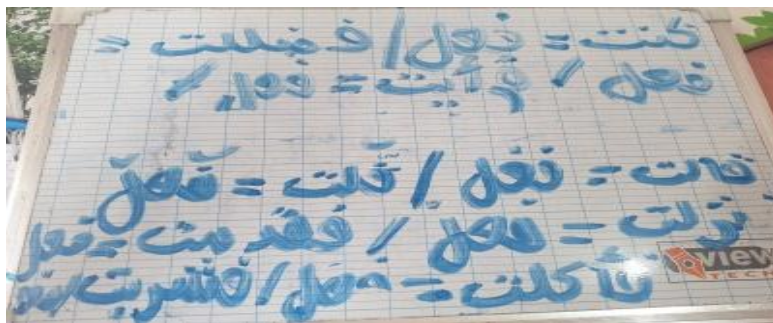 كنت = فعل / فضلت =
فعل / رأيت = فعل /
قالت = فعل / قلت = فعل
نزلت = فعل / فقدمت = فعل
فأكلت = فعل / فشربت
view
TECH